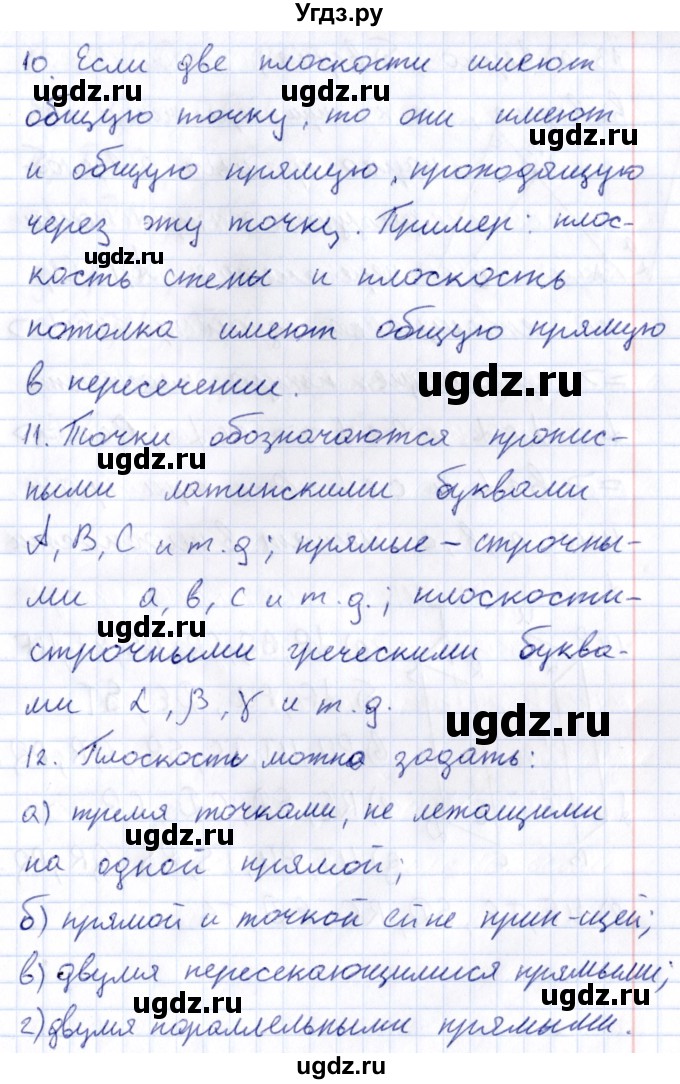 Угдз.ру
10. Если две плоскости имеют
общую точку, то они имеют
и общую прямую, проходящую
через эту точку. Пример: плос-
ugdz.ru
кость стены и плоскость
потолка имеют общую прямую
в пересечении.
ugdz.ru
11. Точки обозначаются пропис-
ugdz.ru
ными латинскими буквами
A, B, C и т.д; прямые – строчны-
ми a, b, c и т.д.; плоскости-
ugdz.ru
строчными греческими буква-
ми α, β, γ и т.д.
ugdz.ru
12. Плоскость можно задать:
а) тремя точками, не лежащими
ugdz.ru
на одной прямой;
б) прямой и точкой ей не прин-щей;
в) двумя пересекающимися прямыми;
ugdz.ru
ugdz.ru
г) двумя параллельными прямыми.
ugdz.ru